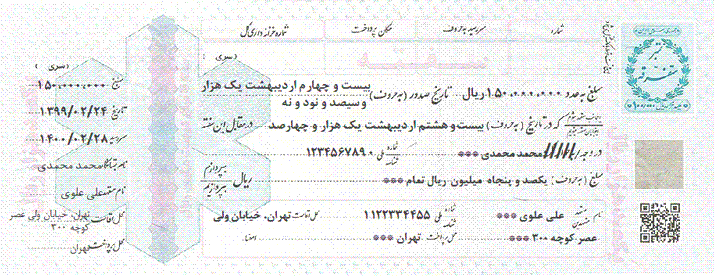 شماره
سررسید به حروف
مکان پرداخت
شماره خزانه داری کل
(سری )
مبلغ به عدد ۱۵۰,۰۰۰,۰۰۰ ریال
تاریخ صدور (به حروف) بیست و چهارم اردیبهشت یک هزار و سیصد و نود و نه
که در تاریخ (به حروف) بیست و هشتم اردیبهشت یک هزار و چهارصد در مقابل این سفته
در وجه محمد محمدی *** شماره ملی ۱۲۳۴۵۶۷۸۹۰
مبلغ (به حروف) یکصد و پنجاه میلیون ریال تمام *** ریال بپردازم بپردازیم
نام متعهد علی علوی *** شماره ملی ۱۱۲۲۳۳۴۴۵۵ محل اقامت تهران، خیابان ولی
عصر کوچه ۳۰۰ *** محل پرداخت تهران *** امضاء
(سری )
مبلغ ۱۵۰,۰۰۰,۰۰۰
تاریخ ۱۳۹۹/۰۲/۲۴
سررسید ۱۴۰۰/۰۲/۲۸
محمد محمدی
نام متعهد علی علوی
محل اقامت تهران، خیابان ولی عصر
کوچه ۳۰۰
محل پرداخت تهران